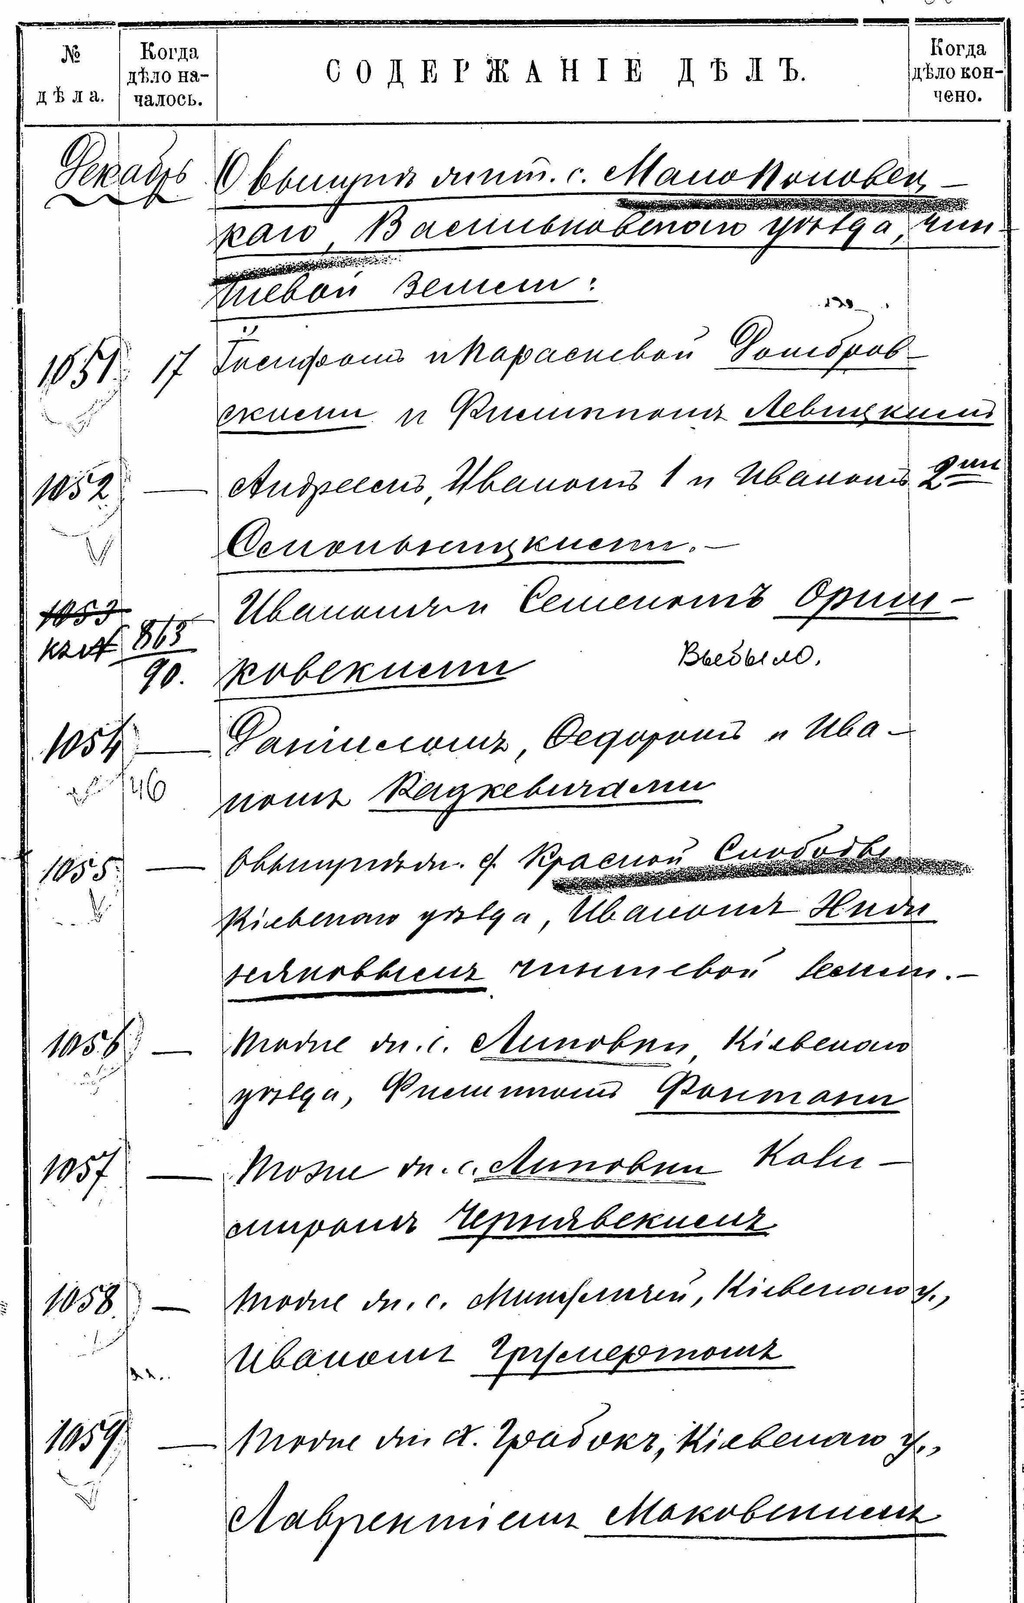 № дѣла.
Когда дѣло на-чалось.
СОДЕРЖАНІЕ ДѢЛЪ.
Когда дѣло кон-чено.
Декабрь О выкупѣ жит. с. Малополовец-
каго, Васильковскаго уѣзда, чин-
шевой земли:
1051 17 Іосифомъ и Парасиевой Домбров-
скими и Филиппомъ Левицкимъ
1052 — Андреемъ, Иваномъ 1 и Иваномъ 2мъ
Семполынцкими.—
1053 Иваномъ и Семеномъ Ориш-
къ № 863/90. ковскими Выбыло.
1054 — Даніиломъ, Федоромъ и Ива-
46 номъ Радкевичами
1055 — О выкупѣ жит. д. Красной Слободы
Кіевскаго уѣзда, Иваномъ
чиншевой земли.—
1056 — Тоже жит. с. Липовки, Кіевскаго
уѣзда, Филиппомъ Фонтани
1057 — Тоже жит. с. Липовки Кази-
миромъ Чернявскимъ
1058 — Тоже жит. с. Кіевскаго у.,
Иваномъ
1059 — Тоже жит. д. Грабокъ, Кіевскаго у.,
Лаврентіемъ Маковскимъ